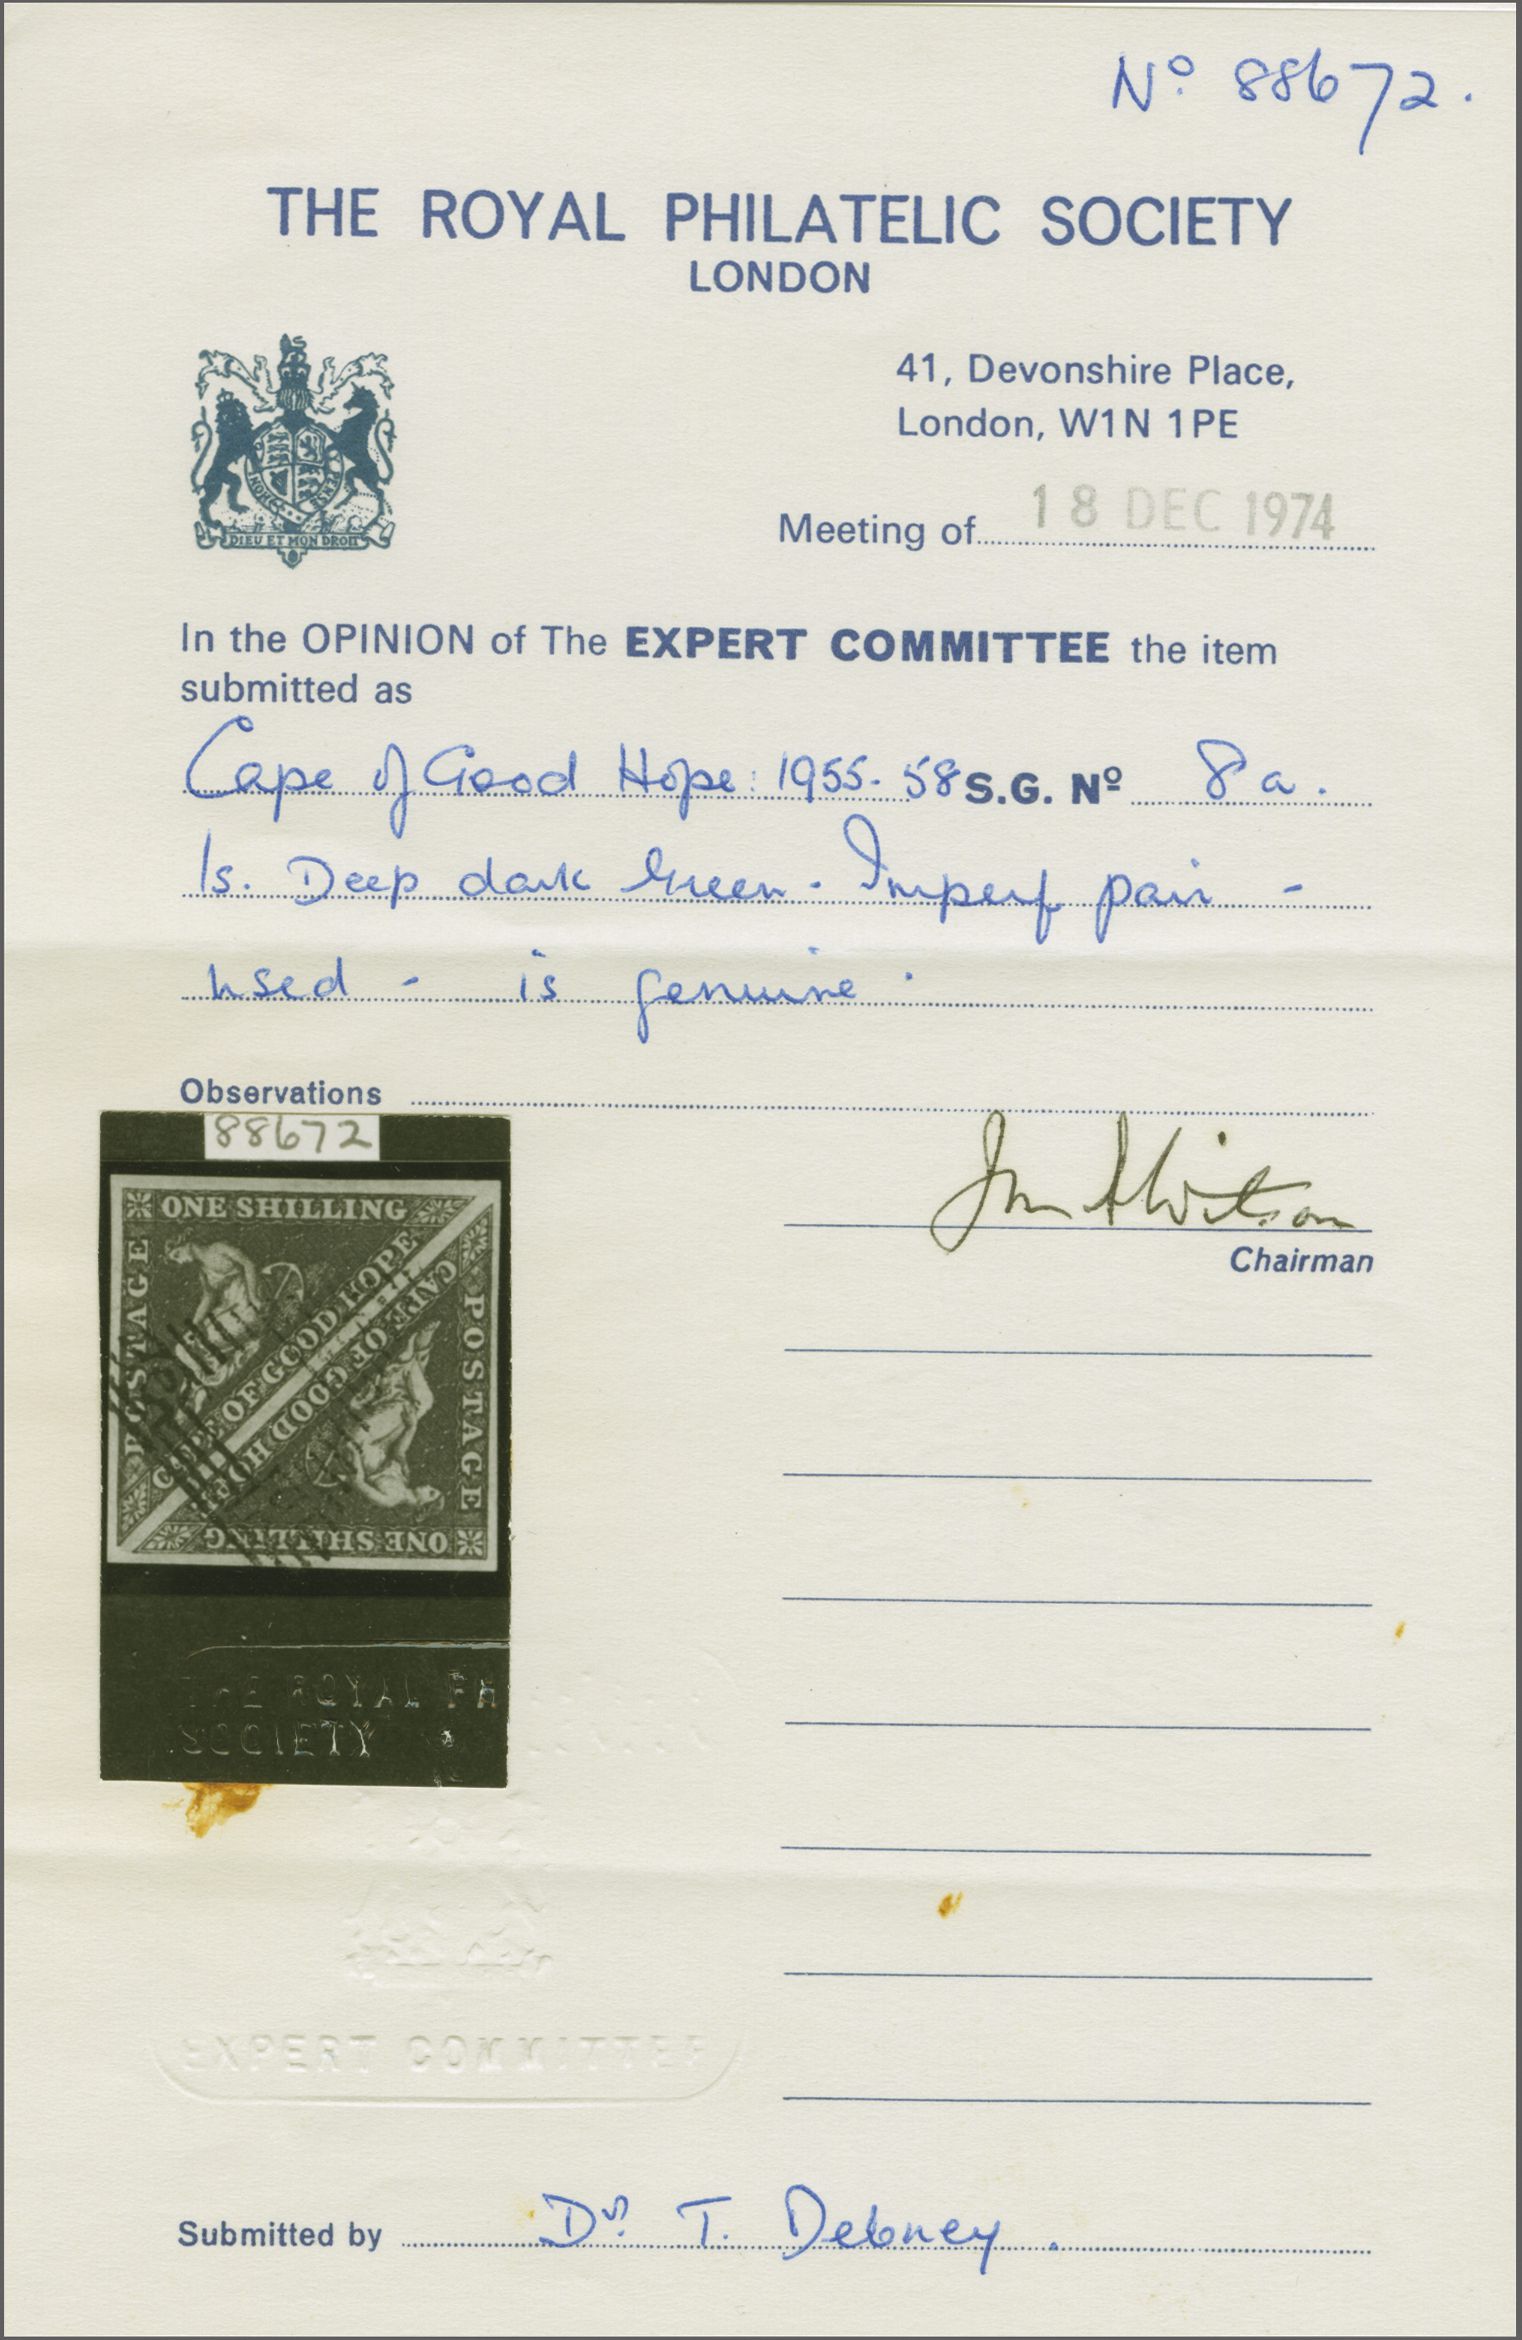 Nº 88672.
THE ROYAL PHILATELIC SOCIETY
LONDON
41, Devonshire Place,
London, W1N 1PE
DIEU ET MON DROIT
Meeting of 18 DEC 1974
In the OPINION of The EXPERT COMMITTEE the item
submitted as
Cape of Good Hope: 1955-58 S.G. Nº 8a.
1s. Deep dark Green - Imperf pair -
used - is genuine.
Observations
88672
ONE SHILLING
POSTAGE
CAPE OF GOOD HOPE
CAPE OF GOOD HOPE
POSTAGE
ONE SHILLING
Chairman
THE ROYAL PH
SOCIETY
EXPERT COMMITTEE
Submitted by Dr. T. Debney.